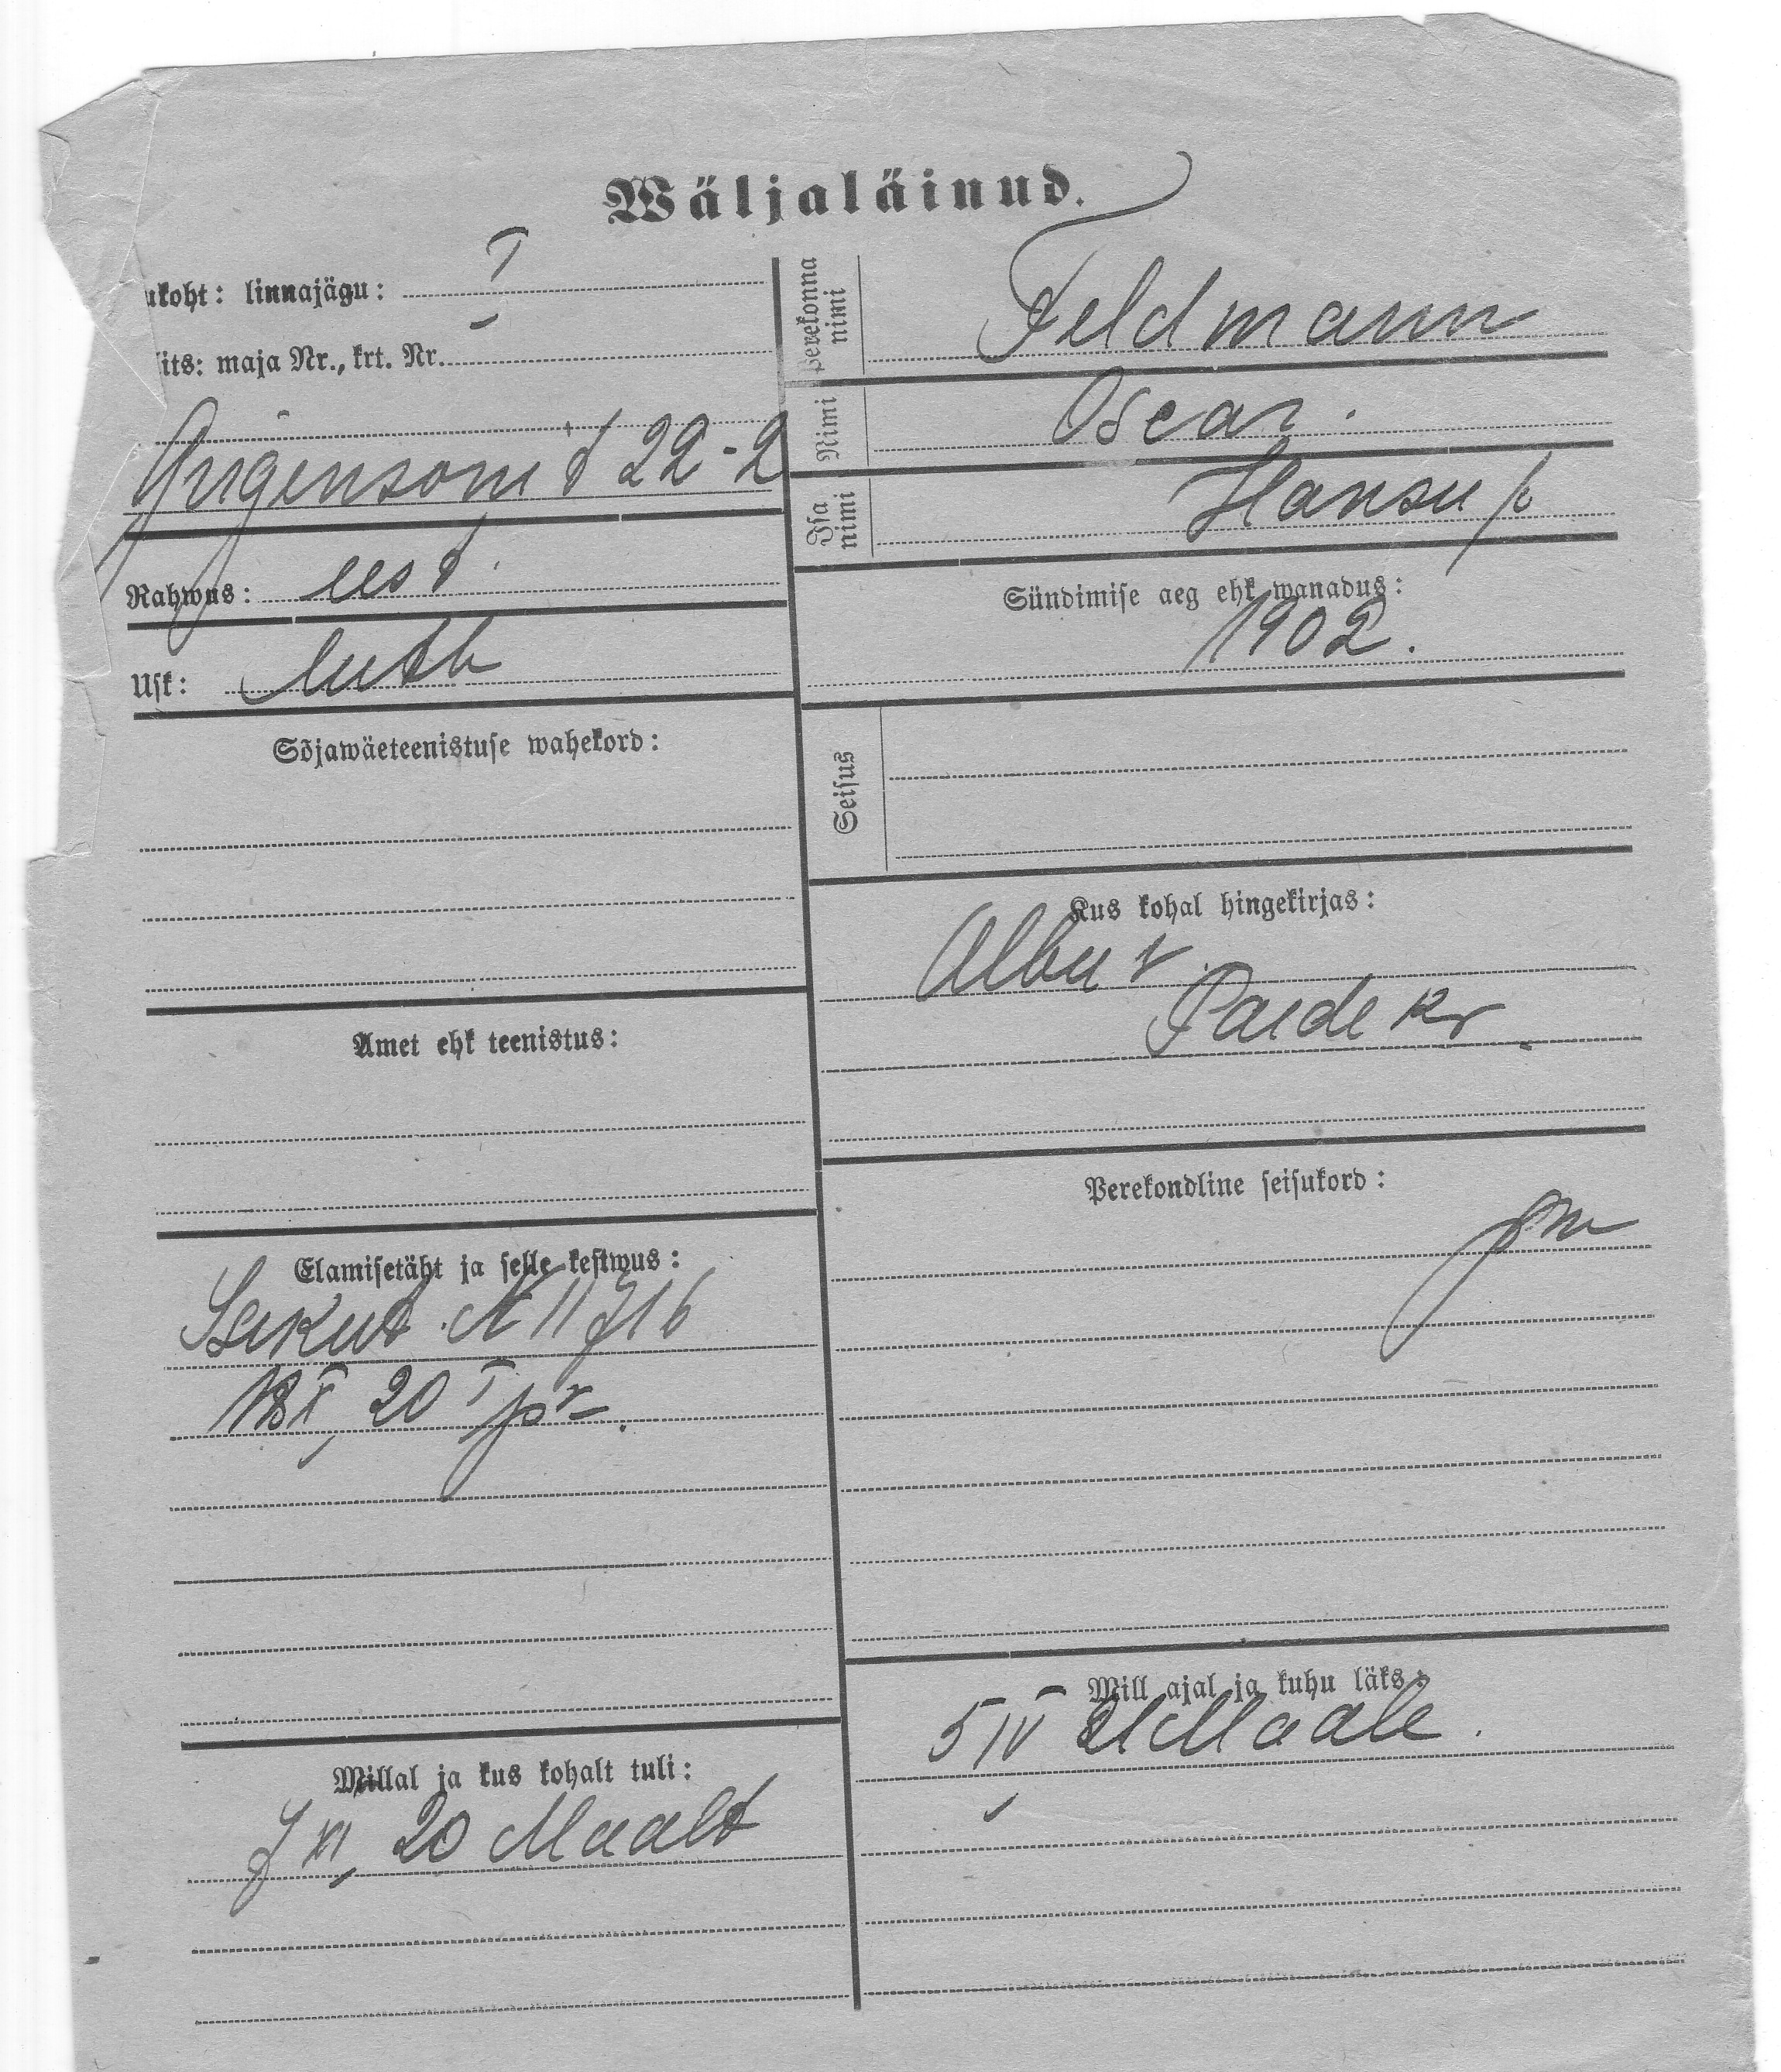 Wäljaläinud.
ukoht: linnajägu: I
its: maja Nr., krt. Nr.
Jürgensoni t 22-2
Rahwus: eest.
Usk: luth
Sõjawäeteenistuse wahekord:
Amet ehk teenistus:
Elamisetäht ja selle kestwus:
Isikut. N 11716
18 X 20 I pr.
Millal ja kus kohalt tuli:
7 XI 20 Maalt
Perekonna nimi Feldmann
Nimi Oscar.
Isa nimi Hansu p
Sündimise aeg ehk wanadus:
1902.
Seisus
Kus kohal hingekirjas:
Albu v.
Paide kr.
Perekondline seisukord:
Mill ajal ja kuhu läks:
5 IV 21 Maale.